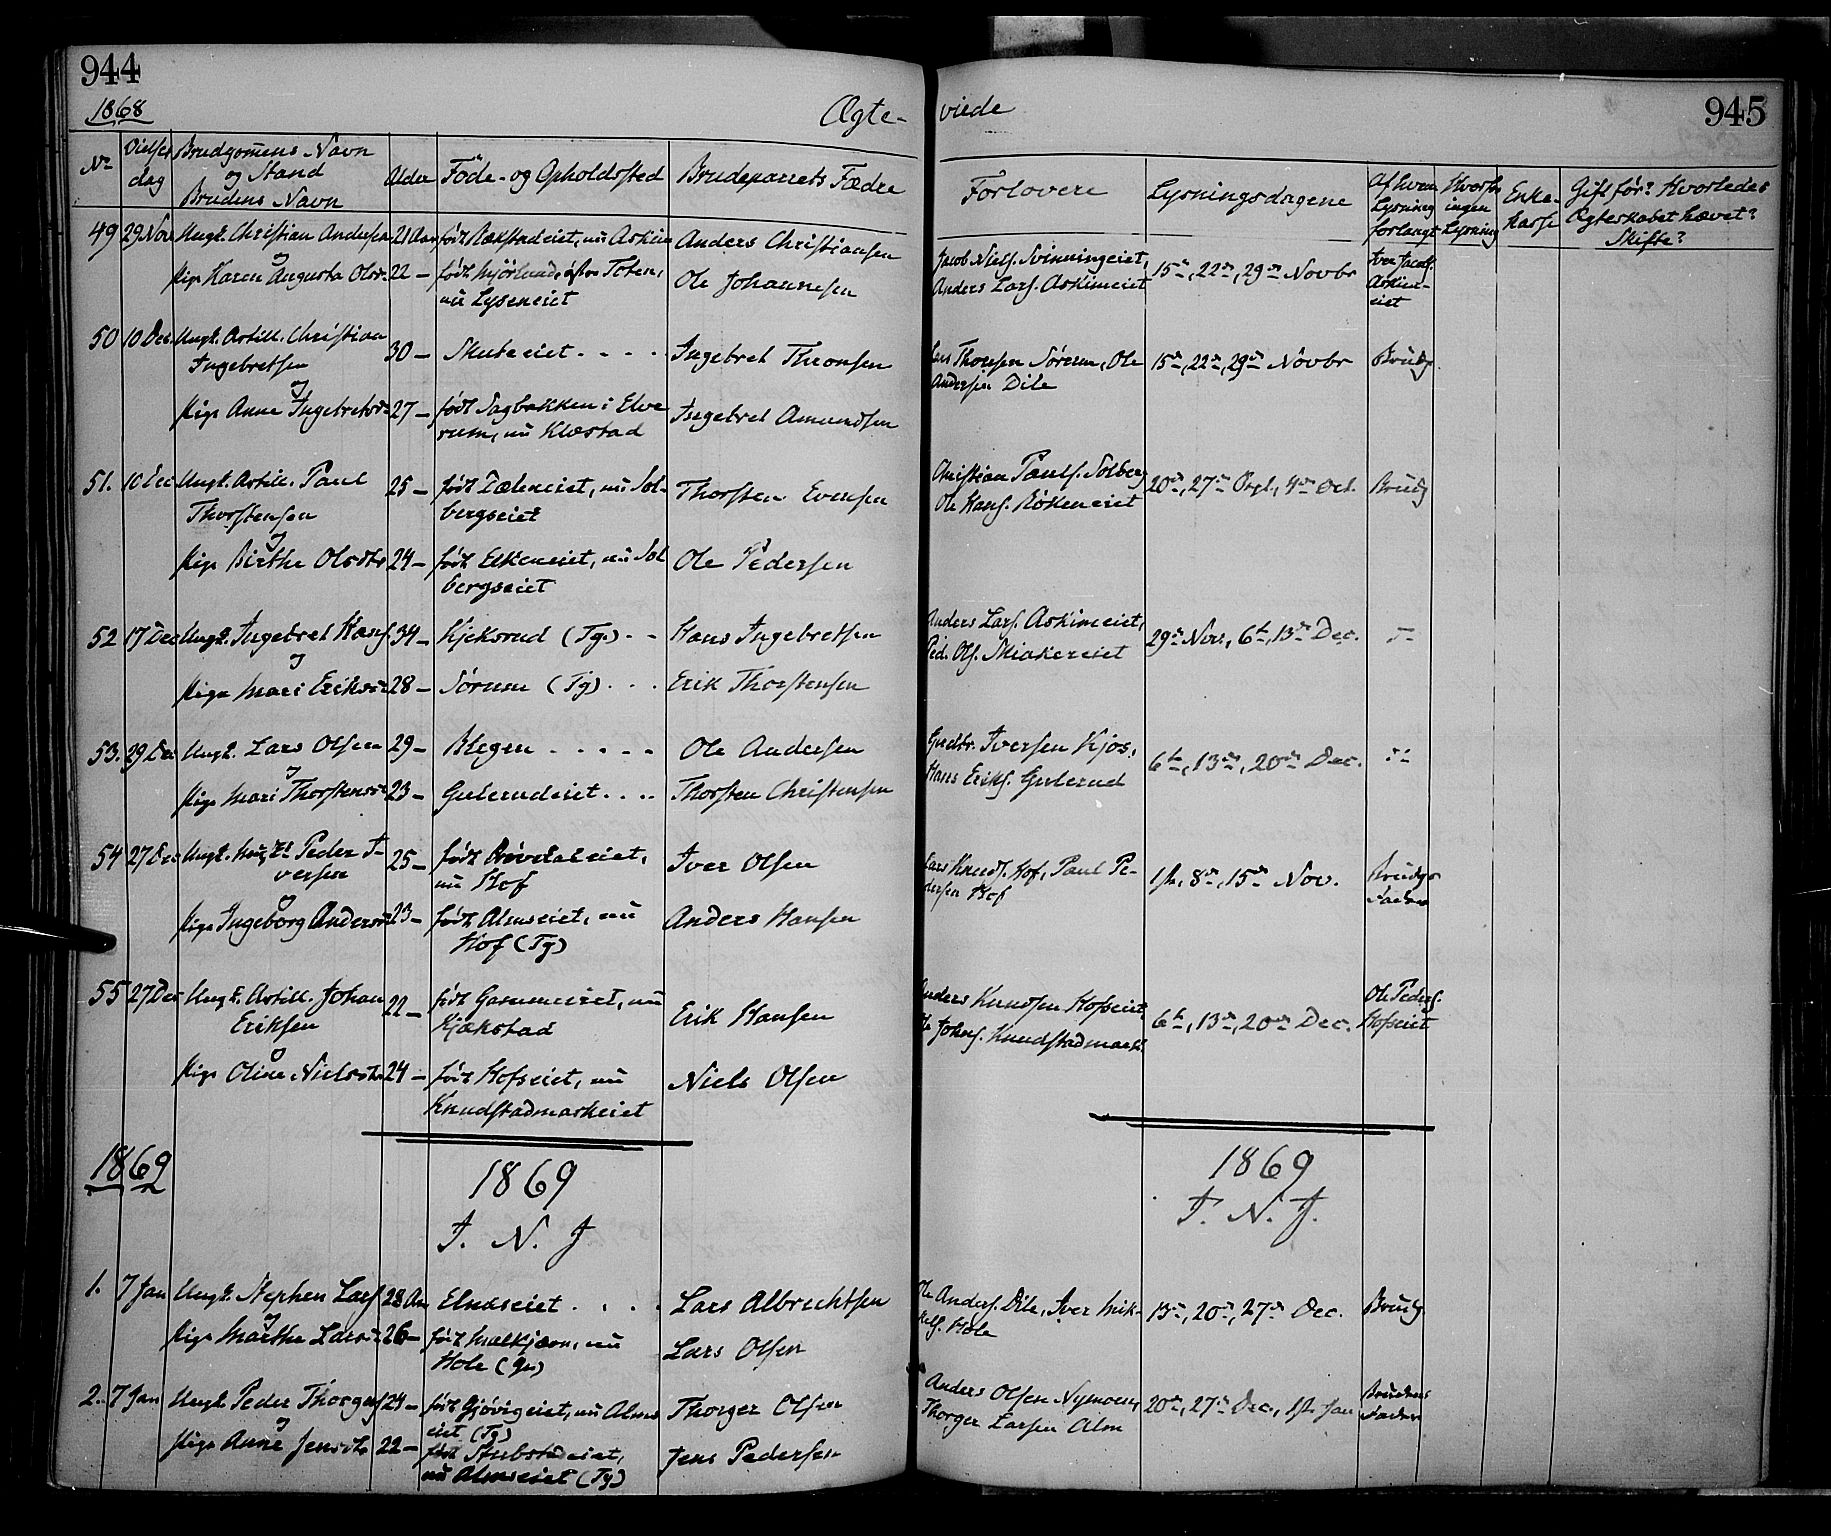 944
1868
Ægte-
viede
945
No
Vielses dag
Brudgomens Navn og Stand
Brudens Navn
Alder
Föde- og Opholdssted
Brudeparrets Fædre
Forlovere
Lysningsdagene
Af hvem Lysning forlangt
Hvorfor ingen Lysning
Enke-kasse
Gift før? Hvorledes Ægteskabet hævet? Skifte?
49 29 Nov Ungk. Christian Andersen 21 Aar født Rækstadeiet, nu Askim Anders Christiansen
Jacob Niels. Svinningeiet, 15de, 22de, 29de Novbr Iver Jacobs.
og
Pige Karen Augusta Olsd. 22 - født Mjörlund, östre Toten, Ole Johannesen
Anders Lars. Askimeiet Askim-
nu Lyseneiet
eiet
50 10 Dec. Ungk. Artill. Christian
Ingebretsen 30 - Skuteeiet . . . . Ingebret Thronsen
Lars Thronsen Sörum, Ole 15de, 22de, 29de Novbr Brudg.
Andersen Dile
og
Pige Anne Ingebretsd. 27 - født Sagbakken i Elve Ingebret Amundsen
rum, nu Klæstad
51. 10 Dec Ungk. Artill. Paul 25 - født Dæleneiet, nu Sol- Thorsten Evensen
Thorstensen bergseiet
Christian Pauls. Solberg 20de, 27de Sept., 4de Oct. Brudg
Ole Hans. Rökeneiet
og
Pige Birthe Olsdtr 24 - født Eikeneiet, nu Sol Ole Pedersen
bergseiet
52 17 Dec Ungk. Ingebret Hans. 34 - Kjeksrud (Tg) - - Hans Ingebretsen
Anders Lars. Askimeiet, 29de Nov., 6te, 13de Dec.
Ped. Ols. Skiakereiet
og
Pige Mari Eriksd. 28 - Sörum (Tg) . . . Erik Thorstensen
53. 29 Dec Ungk. Lars Olsen 29 - Blegen . . . . . Ole Andersen
Gudbr. Iversen Kjos, 6te, 13de, 20de Dec.
Hans Eriks. Gulerud
og
Pige Mari Thorstensd. 23 - Gulerudeiet . . . Thorsten Christensen
54 27 Dec Ungk. Peder I- 25 - født Prövdaleiet, Iver Olsen
versen nu Hof
Lars Knuds. Hof, Paul Pe- 1ste, 8de, 15de Nov. Brudgs
dersen Hof Fader
og
Pige Ingeborg Andersd. 23 - født Almseiet, nu Anders Hansen
Hof (Tg)
55 27 Dec Ungk. Artill. Johan 22 - født Gaimeiet, nu Erik Hansen
Eriksen Kjækstad
Anders Knudsen Hofseiet, 6te, 13de, 20de Dec. Ole Peders.
Ole Johns. Knudstadmark. Hofseiet
og
Pige Oline Nielsdtr 24 - født Hofseiet, nu Niels Olsen
Knudstadmarkeiet
1869
1869
I. N. J
1869
I. N. J.
1. 7 Jan Ungk. Stephen Lars. 28 Aar Elndseiet . . . . Lars Albrechtsen
Ole Anders. Dile, Iver Mik- 13de, 20de, 27de Dec. Brudg
kels. Hole
og
Pige Marthe Larsd. 26 - født Mælkjærn, nu Lars Olsen
Hole (Gr)
2. 7 Jan Ungk. Peder Thorgers. 24 - født Gjøvigeiet, nu Alms Thorger Olsen
eiet (Tg)
Anders Olsen Nysæter, 20de, 27de Dec., 1ste Jan Brudens
Thorger Larsen Alm Fader
og
Pige Anne Jensdtr 22 - født Stubstadeiet, Jens Pedersen
nu Almseiet (Tg)